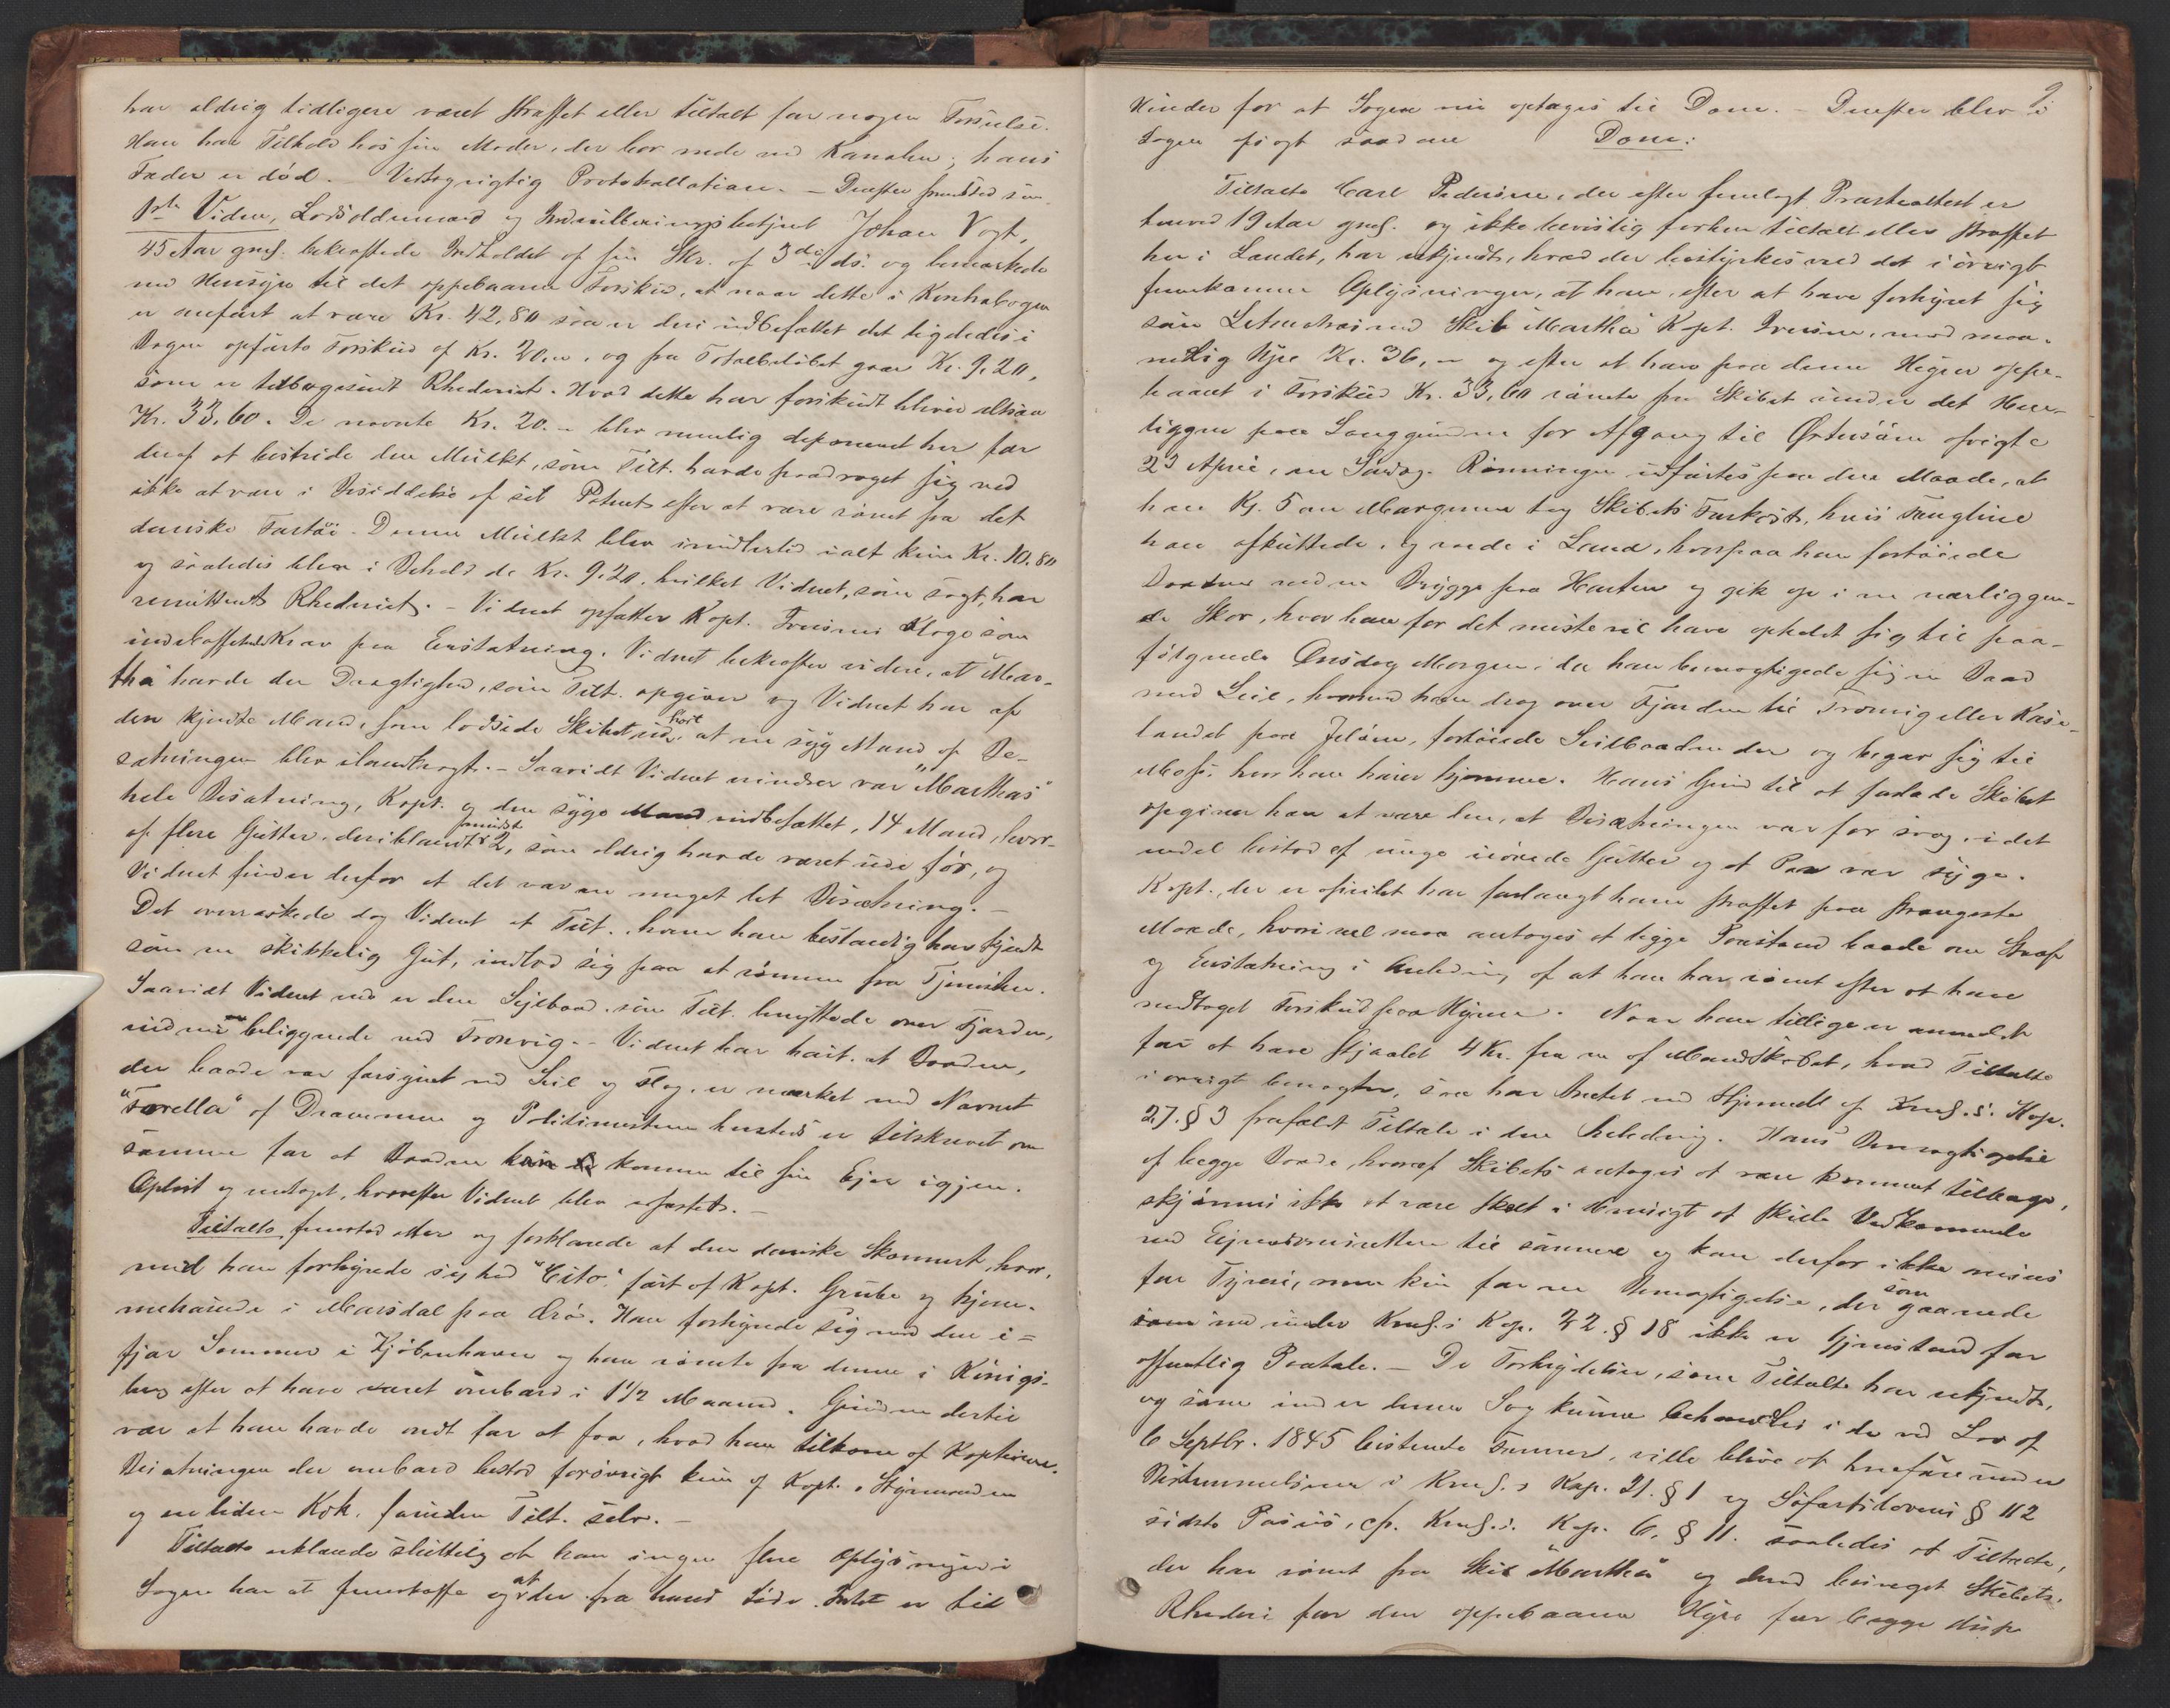 har aldrig tidligere været straffet eller tiltalt for nogen Forseelse.
Han har Tilhold hos sin Moder, der bor nede ved Kanalen; hans
Fader er død. – Vedtog rigtig Protokollation. – Derefter fremstod som
1ste Vidne, Lodsoldermand og Indrulleringsbetjent Johan Vogt,
45 Aar gml. bekræftede Indholdet af sin Skr. af 3die ds. og bemærkede
med Hensyn til det oppebaarne Forskud, at naar dette i Kontrabogen
er anført at være Kr. 42,80 saa er deri indbefattet det ligeledes i
Bogen opførte Forskud af Kr. 20,– , og fra Totalbeløbet gaar Kr. 9,20,
som er tilbagesendt Rhederiet. Hvad dette har forskudt bliver altsaa
Kr. 33,60. De nævnte Kr. 20.– blev nemlig deponeret her for
deraf at bestride den Mulkt, som Tilt. havde paadraget sig ved
ikke at være i Besiddelse af sit Patent efter at være rømt fra det
danske Fartøi. Denne Mulkt blev imidlertid ialt kun Kr. 10.80
og saaledes blev i Behold de Kr. 9.20. hvilket Vidnet, som sagt, har
remitteret Rhederiet. – Vidnet opfatter Kapt. Iversens Klage som
indbefattende Krav paa Erstatning. Vidnet bekræfter videre, at "Mar-
tha" havde den Drægtighed, som Tilt. opgiver og Vidnet har af
den kjendte Mand, som lodsede Skibet ud, hørt at en syg Mand af Be-
sætningen blev ilandbragt. – Saavidt Vidnet erindrer var "Marthas"
hele Besætning, Kapt. og den syge Mand indbefattet, 14 Mand, hvor-
af flere Gutter, deriblandt mindst 2, som aldrig havde været ude før, og
Vidnet finder derfor at det var en meget let Besætning. –
Det overraskede dog Vidnet at Tilt., hvem han bestandig har kjendt
som en skikkelig Gut, indlod sig paa at rømme fra Tjenesten.
Saavidt Vidnet ved er den Sejlbaad, som Tilt. benyttede over Fjorden,
endnu beliggende ved Tronvig. – Vidnet har hørt, at Baaden,
der baade var forsynet med Seil og Flag, er mærket med Navnet
"Forella" af Drammen og Politimesteren hersteds er tilskrevet om
samme for at Baaden kan komme til sin Ejer igjen.
Oplæst og vedtaget, hvorefter Vidnet blev afhørt. –
Tiltalte fremstod atter og forklarede at den danske Skonnert, hvor-
med han forhyrede sig hed "Cito" ført af Kapt. Grube og hjem-
mehørende i Marsdal paa Ærø. Han forhyrede sig med den i=
fjor Sommer i Kjøbenhavn og han rømte fra denne i Königs-
berg efter at have været ombord i 1½ Maaned. Grunden dertil
var at han havde ondt for at faa, hvad han tilkom af Kapteinen.
Besætningen der ombord bestod forøvrigt kun af Kapt., Styrmanden
og en liden Kok, foruden Tilt. selv. –
Tiltalte erklærede sluttelig at han ingen flere Oplysninger i
Sagen har at fremskaffe og at der fra hans Side Intet er til
2
Hinder for at Sagen nu optages til Dom. – Derefter blev i
Sagen sagt saadan Dom:
Tiltalte Carl Pedersen, der efter fremlagt Præsteattest er
henved 19 Aar gml. og ikke bevislig forhen tiltalt eller straffet
her i Landet, har erkjendt, hvad der bestyrkes ved det iøvrigt
fremkomne Oplysninger, at han, efter at have forhyret sig
som Letmatros med Skib "Martha" Kapt. Iversen, mod maa-
nedlig Hyre Kr. 36,– og efter at have paa denne Hyre oppe-
baaret i Forskud Kr. 33,60 rømte fra Skibet under det Hen-
liggen paa Langgrunden før Afgang til Østersøen afvigte
23 April, en Søndag. Rømningen udførtes paa den Maade, at
han Kl. 5 om Morgenen tog Skibets Farkost, hvis Fangline
han afkuttede, og roede i Land, hvorpaa han fortøiede
Baaden ved en Brygge paa Horten og gik op i en nærliggen-
de Skov, hvor han for det meste vil have opholdt sig til paa-
følgende Onsdag Morgen, da han bemægtigede sig en Baad
med Seil, hvormed han drog over Fjorden til Tronvig eller Kase-
landet paa Jeløen, fortøiede Seilbaaden der og begav sig til
Moss, hvor han hører hjemme. Hans Grund til at forlade Skibet
opgiver han at være den, at Besætningen var for svag, idet
endel bestod af unge uøvede Gutter og at Par var syge.
Kapt., der er afseilet har forlangt ham straffet paa strængeste
Maade, hvori vel maa antages at ligge Paastand baade om Straf
og Erstatning i Anledning af at han har rømt efter at have
modtaget Forskud paa Hyren. Naar han tillige er anmeldt
for at have stjaalet 4 Kr. fra en af Mandskabet, hvad Tiltalte
i øvrigt benægter, saa har Amtet med Hjemmel af Kml.s. Kap.
27. § 3 frafaldt Tiltale i den Anledning. Hans Bemægtigelse
af begge Baade, hvoraf Skibets antages at være kommet tilbage,
skjønnes ikke at være skeet i Hensigt at skille Vedkommende
ved Eiendomsretten til samme og kan derfor ikke ansees
for Tyveri, men kun for en Bemægtigelse, der som gaaende
ind under Kml.s Kap. 22. § 18 ikke er Gjenstand for
offentlig Paatale. – De Forbrydelser, som Tiltalte har erkjendt,
og som under denne Sag kunne behandles i de ved Lov af
6 Septbr. 1845 bestemte Former, ville blive at henføre under
Bestemmelserne i Kml.s Kap. 21. § 1 og Søfartslovens § 112
sidste Passus, cfr. Kml.s. Kap. 6. § 11. saaledes at Tiltalte,
der har rømt fra Skib "Martha" og derved besveget Skibets
Rhederi for den oppebaarne Hyre for begge disse